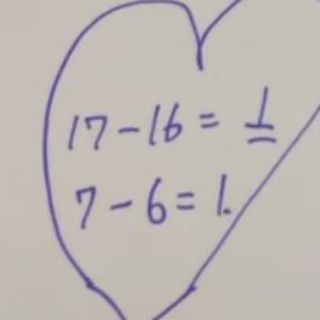 17-16=1
7-6=1.